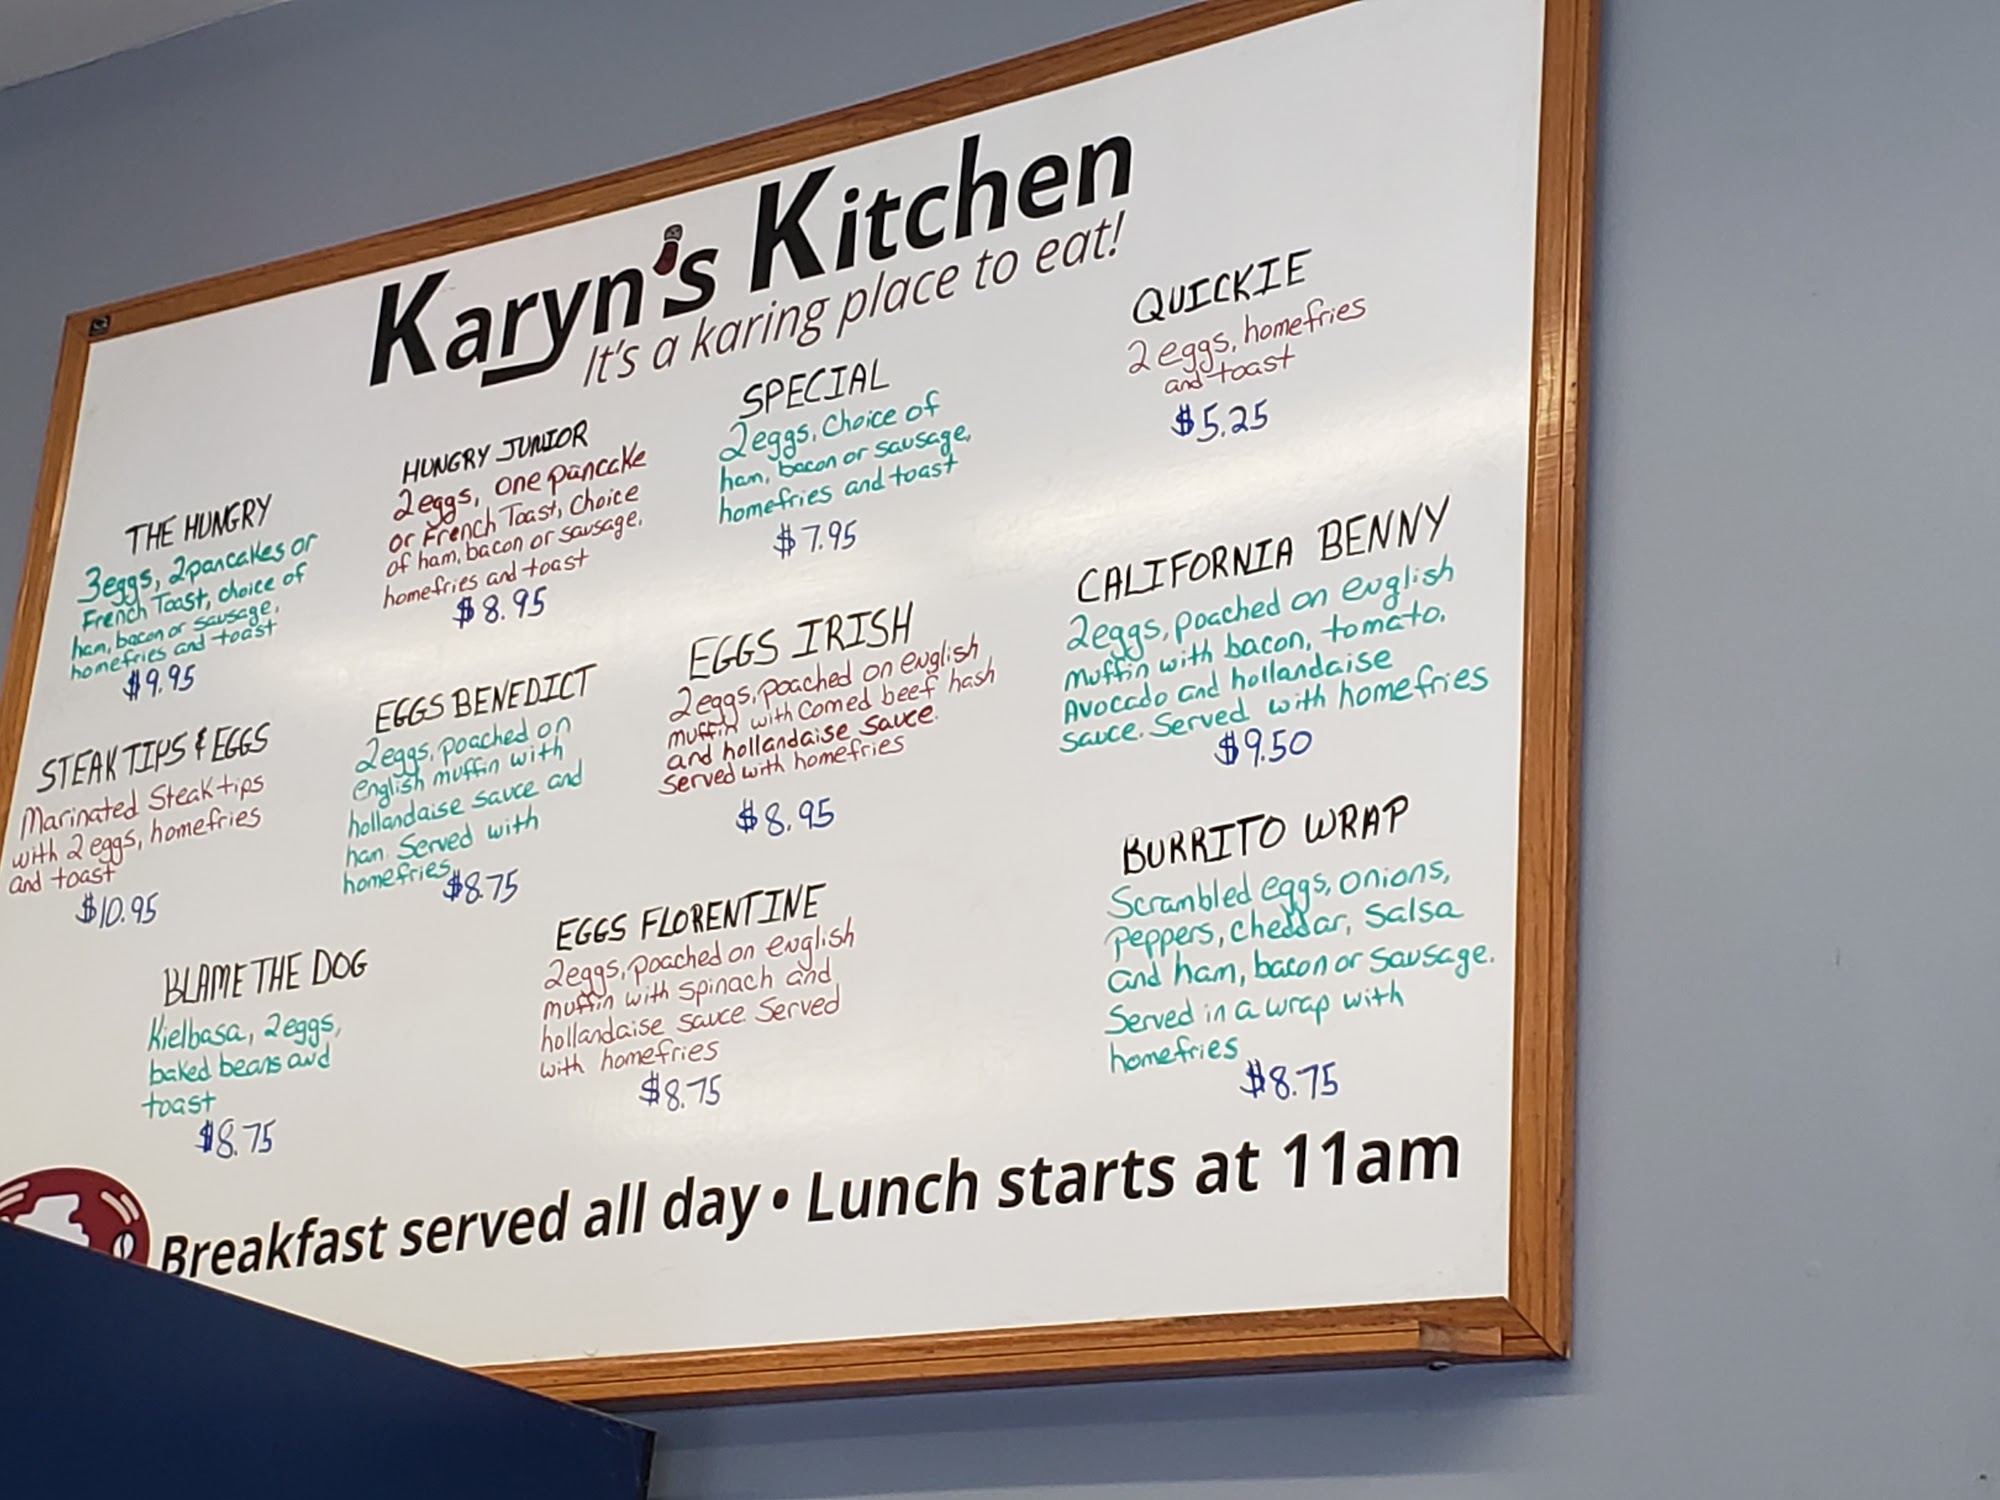 Karyn's Kitchen
It's a karing place to eat!
THE HUNGRY
3eggs, 2pancakes or
French Toast, choice of
ham, bacon or sausage,
homefries and toast
$9.95
HUNGRY JUNIOR
2eggs, one pancake
or French Toast, Choice
of ham, bacon or sausage,
homefries and toast
$8.95
SPECIAL
2eggs, Choice of
ham, bacon or sausage,
homefries and toast
$7.95
QUICKIE
2 eggs, homefries
and toast
$5.25
STEAK TIPS & EGGS
Marinated Steak tips
with 2 eggs, homefries
and toast
$10.95
EGGS BENEDICT
2eggs, poached on
english muffin with
hollandaise sauce and
ham. Served with
homefries
$8.75
EGGS IRISH
2eggs, poached on english
muffin with Corned beef hash
and hollandaise sauce.
Served with homefries
$8.95
CALIFORNIA BENNY
2eggs, poached on english
muffin with bacon, tomato,
Avocado and hollandaise
sauce. Served with homefries
$9.50
BLAME THE DOG
Kielbasa, 2eggs,
baked beans and
toast
$8.75
EGGS FLORENTINE
2eggs, poached on english
muffin with spinach and
hollandaise sauce. Served
with homefries
$8.75
BURRITO WRAP
Scrambled eggs, onions,
Peppers, cheddar, Salsa
and ham, bacon or sausage.
Served in a wrap with
homefries
$8.75
Breakfast served all day • Lunch starts at 11am